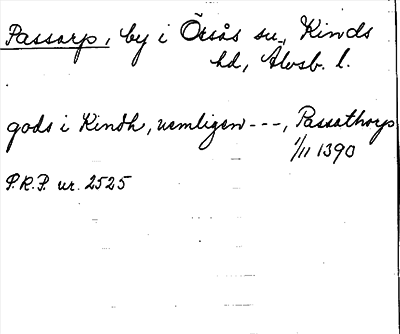 Passarp, by i Örsås sn., Kinds
hd, Älvsb. l.
gods i Kindh, nemligen ---, Passathorp
1/11 1390
P.R.P. nr. 2525